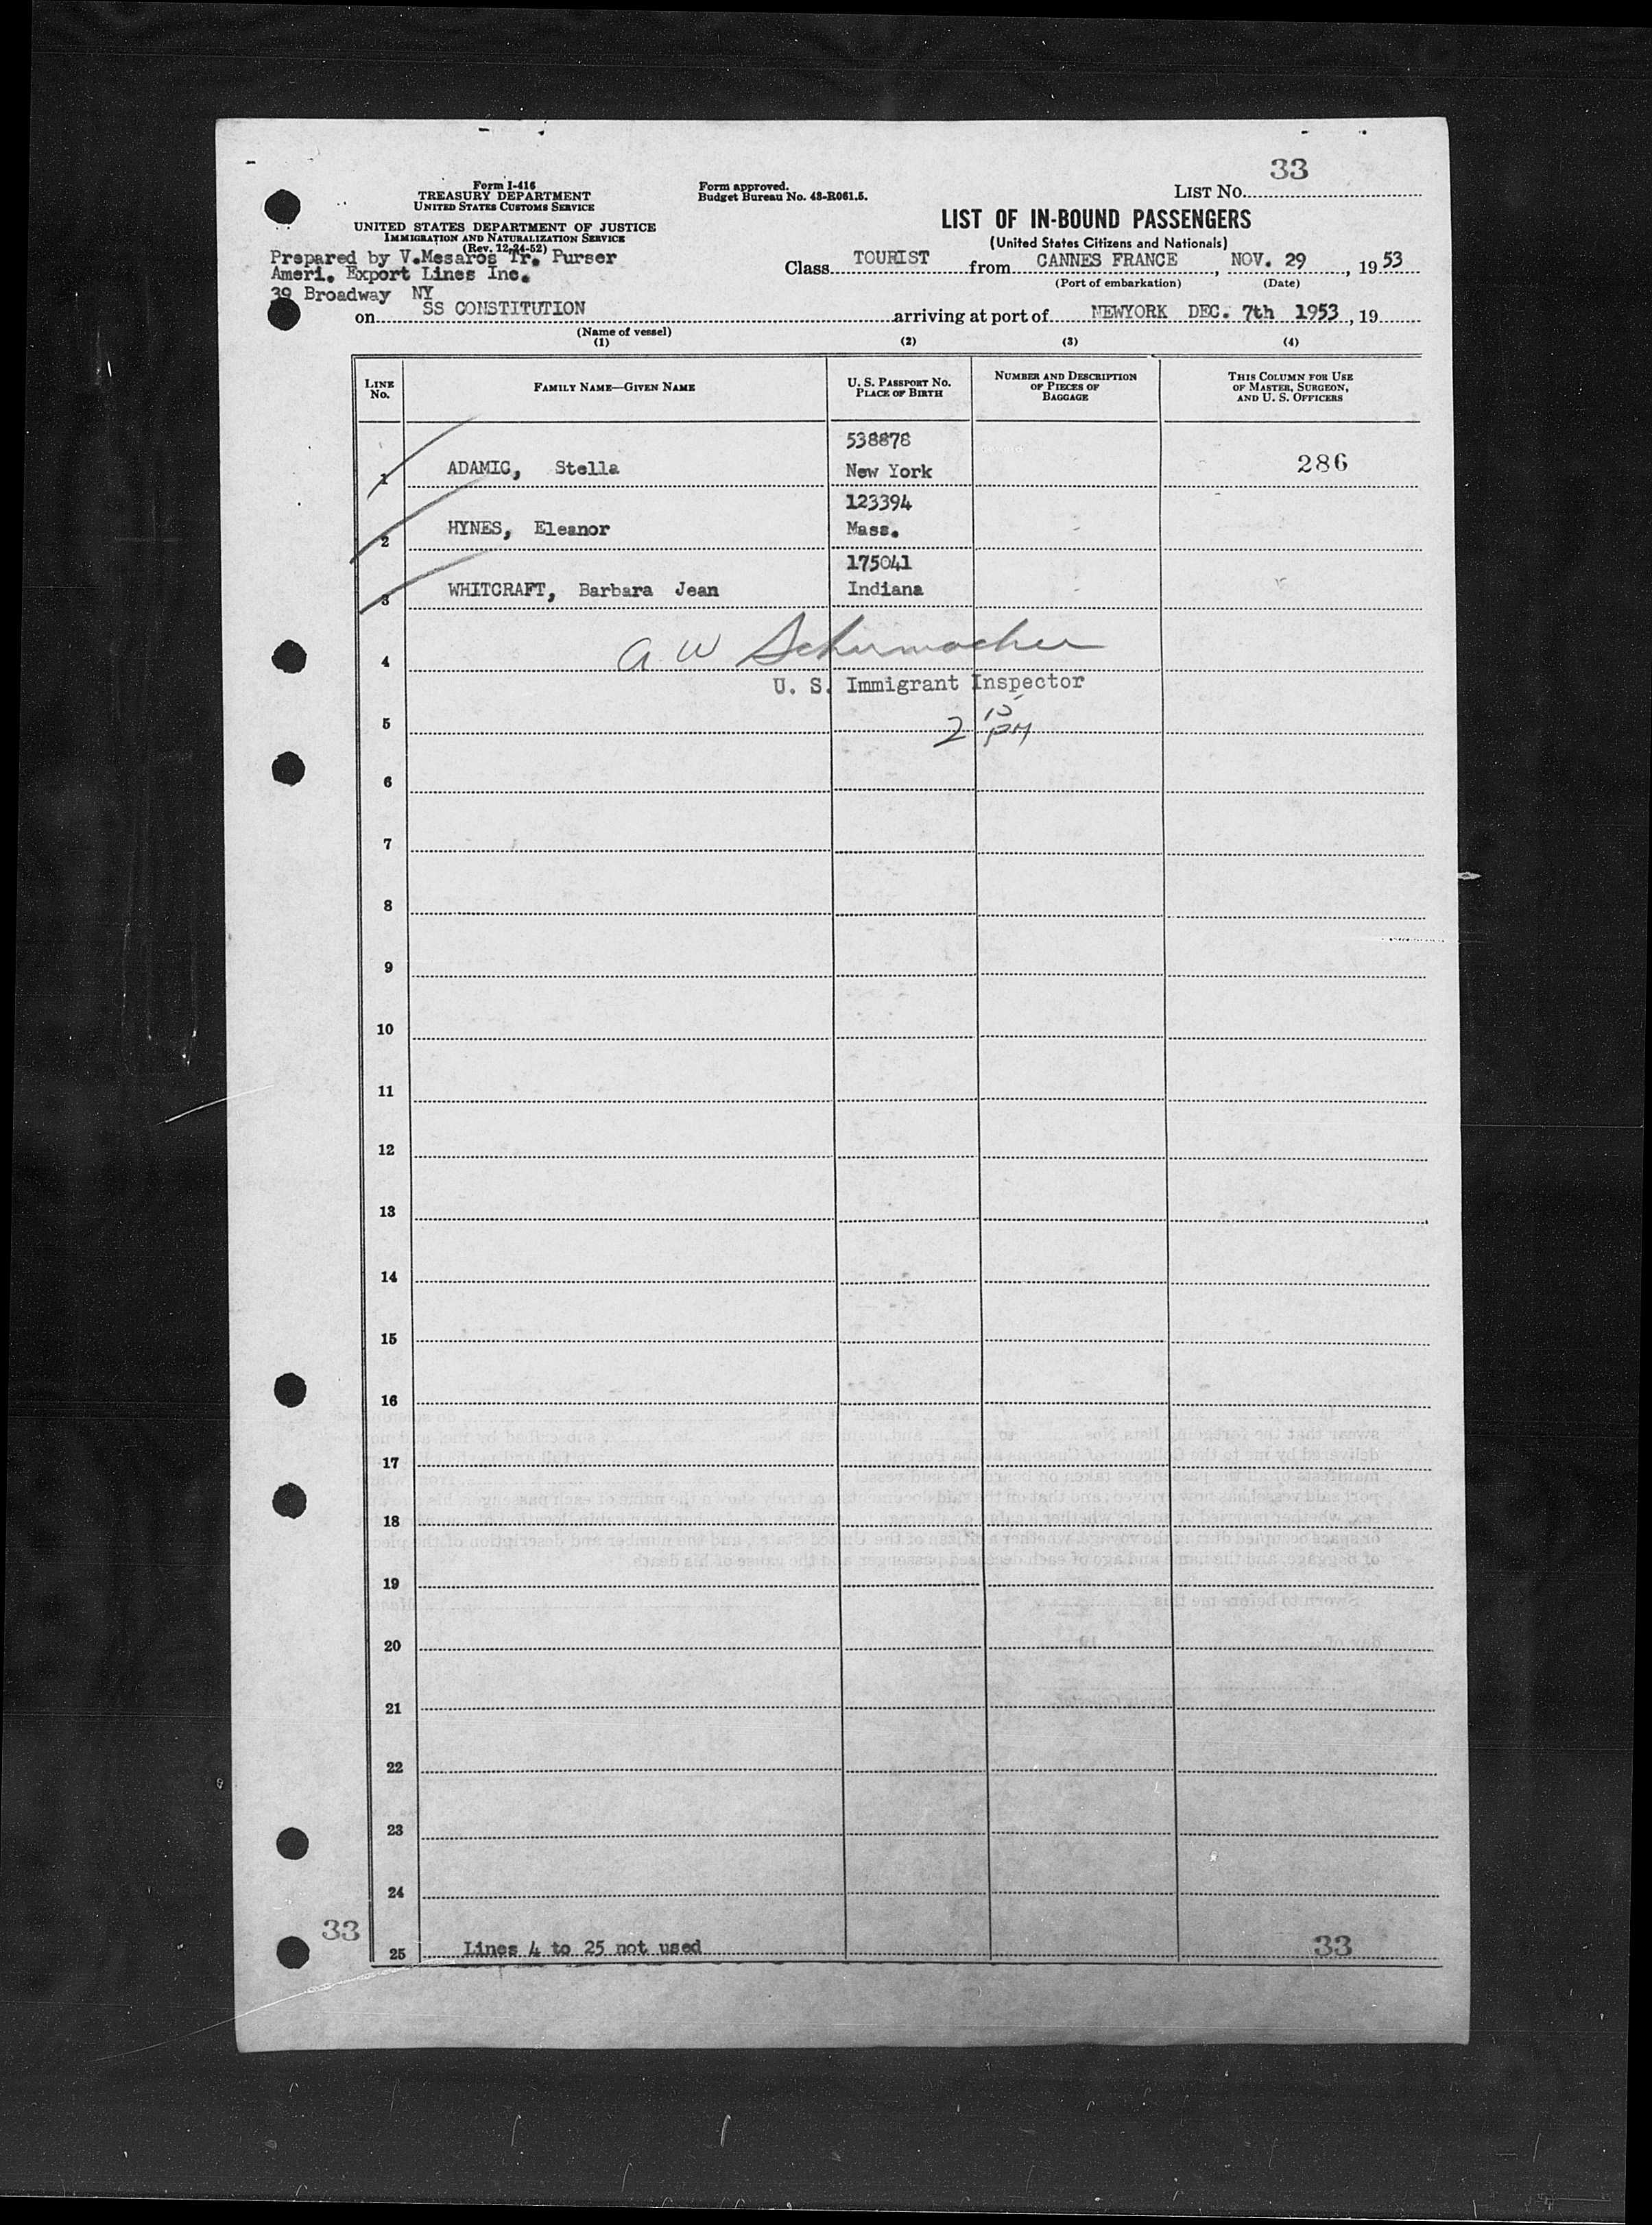 33
LIST No.
Form I-416
TREASURY DEPARTMENT
UNITED STATES CUSTOMS SERVICE
UNITED STATES DEPARTMENT OF JUSTICE
IMMIGRATION AND NATURALIZATION SERVICE
(Rev. 12-24-52)
Form approved.
Budget Bureau No. 43-R061.5.
LIST OF IN-BOUND PASSENGERS
(United States Citizens and Nationals)
Prepared by V.Mesaros Tr. Purser
Ameri. Export Lines Inc.
39 Broadway NY
Class TOURIST from CANNES FRANCE, NOV. 29, 1953
(Port of embarkation) (Date)
on SS CONSTITUTION arriving at port of NEWYORK DEC. 7th 1953, 19
(Name of vessel)
(1) (2) (3) (4)
LINE No. FAMILY NAME—GIVEN NAME U. S. PASSPORT NO. PLACE OF BIRTH NUMBER AND DESCRIPTION OF PIECES OF BAGGAGE THIS COLUMN FOR USE OF MASTER, SURGEON, AND U. S. OFFICERS
538878
1 ADAMIC, Stella New York 286
123394
2 HYNES, Eleanor Mass.
175041
3 WHITCRAFT, Barbara Jean Indiana
4 A W Schumacher
U. S. Immigrant Inspector
5 2 15 PM
6
7
8
9
10
11
12
13
14
15
16
17
18
19
20
21
22
23
24
33
25 Lines 4 to 25 not used 33